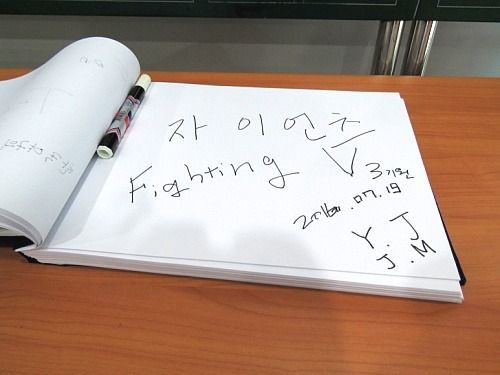 자 이 언 츠
Fighting V3 기원
2016.07.19
Y.J
J.M